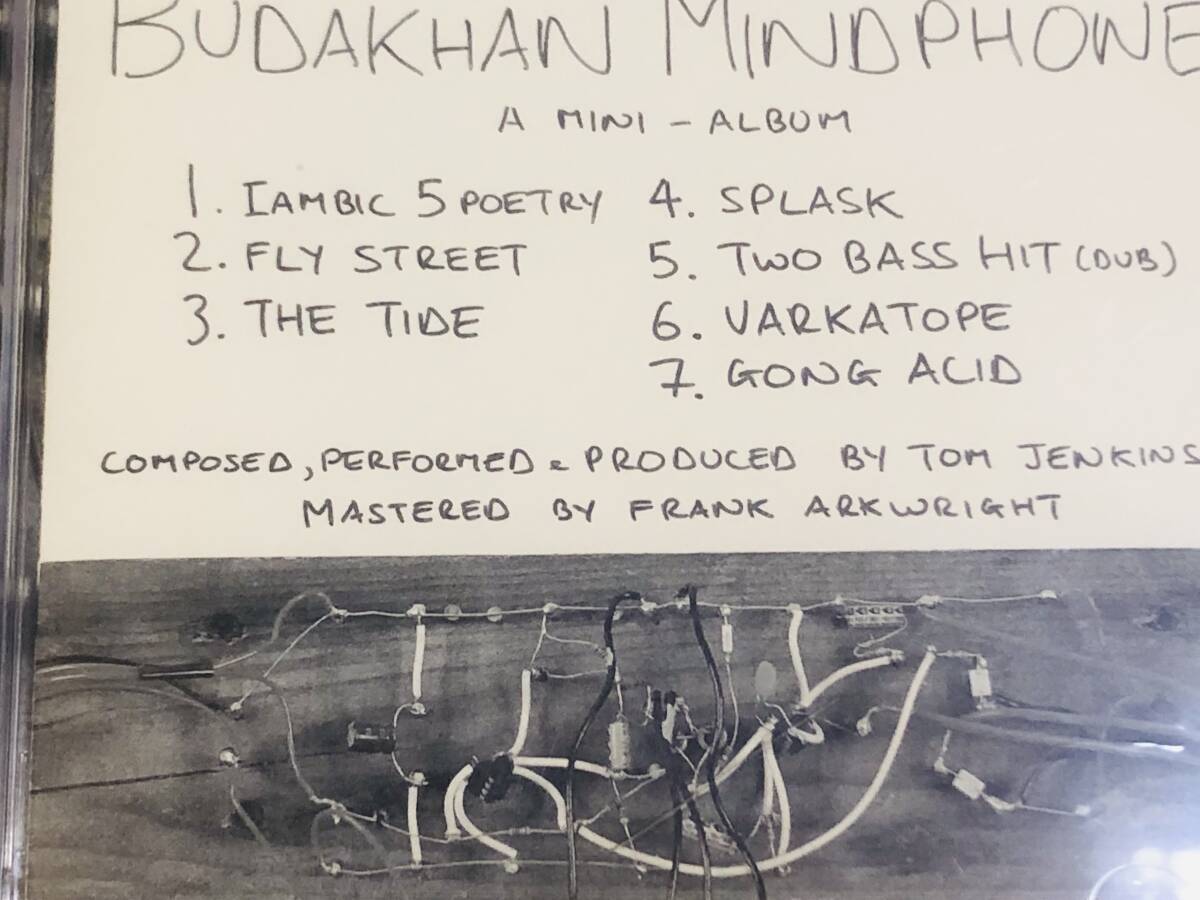 BUDAKHAN MINDPHONE
A MINI - ALBUM
1. IAMBIC 5 POETRY
2. FLY STREET
3. THE TIDE
4. SPLASK
5. TWO BASS HIT (DUB)
6. VARKATOPE
7. GONG ACID
COMPOSED, PERFORMED & PRODUCED BY TOM JENKINS
MASTERED BY FRANK ARKWRIGHT